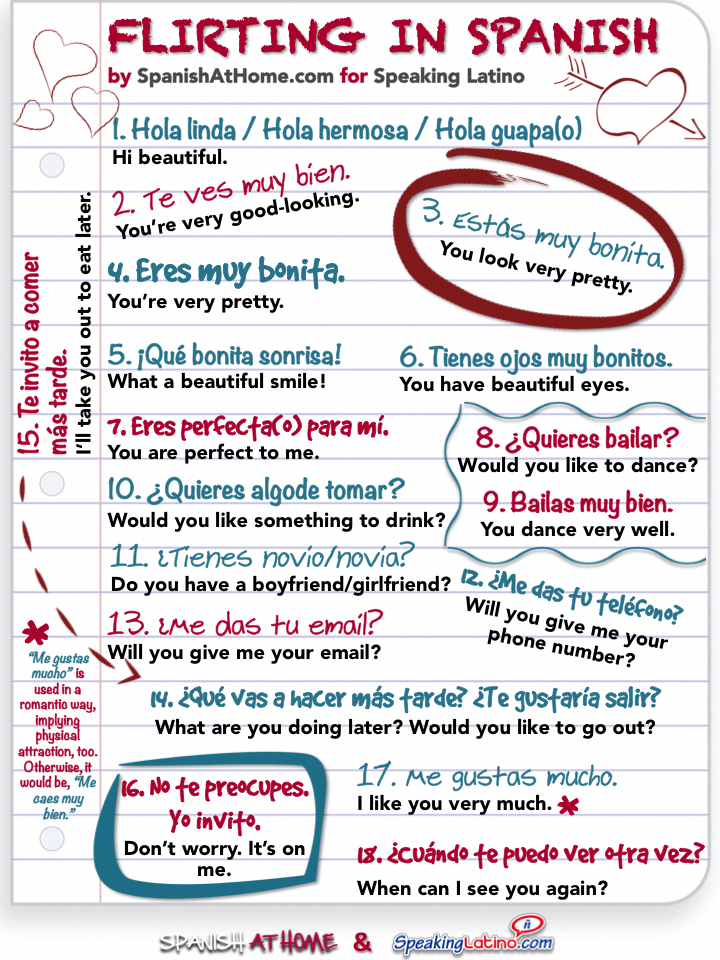 FLIRTING IN SPANISH
by SpanishAtHome.com for Speaking Latino
1. Hola linda / Hola hermosa / Hola guapa(o)
Hi beautiful.
2. Te ves muy bien.
You're very good-looking.
3. Estás muy bonita.
You look very pretty.
4. Eres muy bonita.
You're very pretty.
5. ¡Qué bonita sonrisa!
What a beautiful smile!
6. Tienes ojos muy bonitos.
You have beautiful eyes.
7. Eres perfecta(o) para mí.
You are perfect to me.
8. ¿Quieres bailar?
Would you like to dance?
9. Bailas muy bien.
You dance very well.
10. ¿Quieres algode tomar?
Would you like something to drink?
11. ¿Tienes novio/novia?
Do you have a boyfriend/girlfriend?
12. ¿Me das tu teléfono?
Will you give me your
phone number?
13. ¿Me das tu email?
Will you give me your email?
14. ¿Qué vas a hacer más tarde? ¿Te gustaría salir?
What are you doing later? Would you like to go out?
15. Te invito a comer
más tarde.
I'll take you out to eat later.
16. No te preocupes.
Yo invito.
Don't worry. It's on
me.
17. Me gustas mucho.
I like you very much. *
18. ¿Cuándo te puedo ver otra vez?
When can I see you again?
*
"Me gustas
mucho" is
used in a
romantic way,
implying
physical
attraction, too.
Otherwise, it
would be, "Me
caes muy
bien."
SPANISH AT HOME & SpeakingLatino.com
ñ